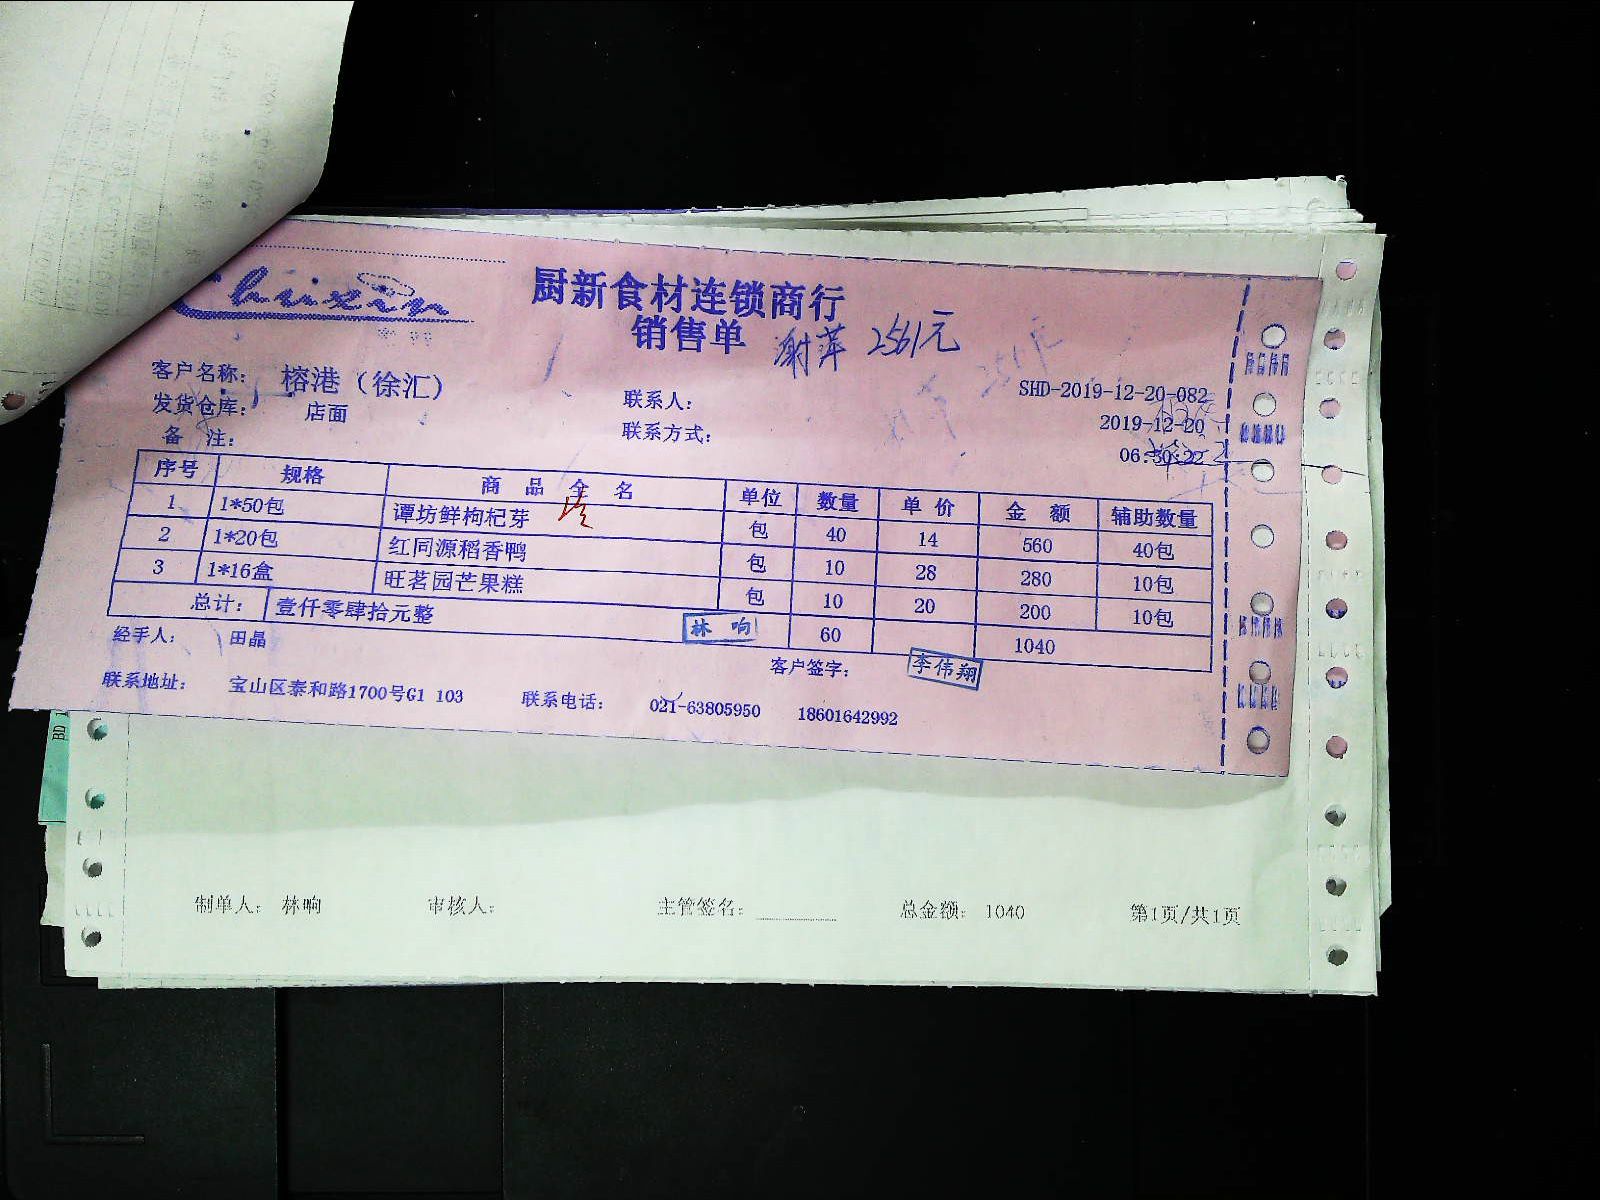 Chuxin
厨新食材连锁商行
销售单
谢萍 2561元
客户名称: 榕港（徐汇）
联系人:
SHD-2019-12-20-082
发货仓库: 店面
联系方式:
2019-12-20
备 注:
06:30:22
序号 规格 商品全名 单位 数量 单价 金额 辅助数量
1 1*50包 谭坊鲜枸杞芽 包 40 14 560 40包
2 1*20包 红同源稻香鸭 包 10 28 280 10包
3 1*16盒 旺茗园芒果糕 包 10 20 200 10包
总计: 壹仟零肆拾元整 60 1040
林响
经手人: 田晶
客户签字: 李伟翔
联系地址: 宝山区泰和路1700号G1 103 联系电话: 021-63805950 18601642992
制单人: 林响 审核人: 主管签名: 总金额: 1040 第1页/共1页